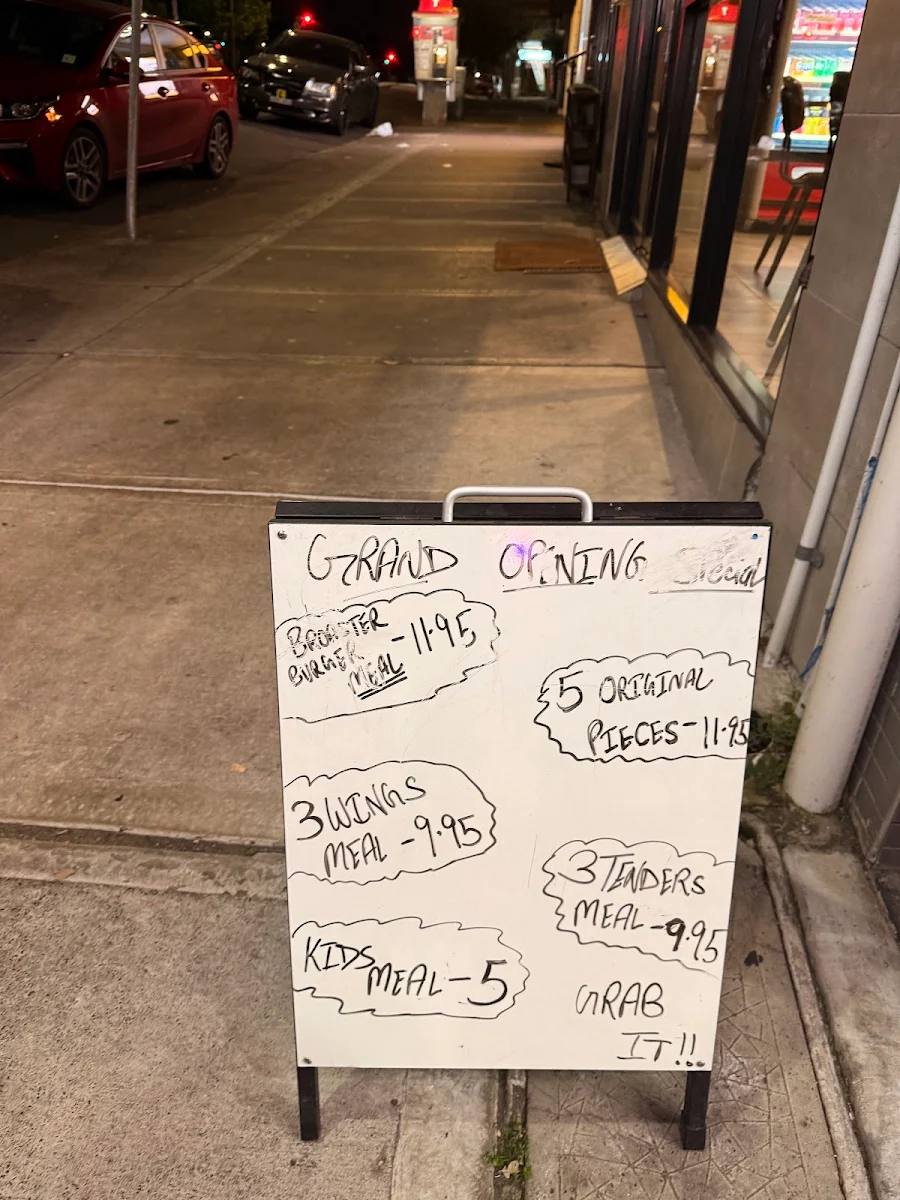 GRAND OPINING Special
BROASTER
BURGER
MEAL -11.95
5 ORIGINAL
PIECES-11.95
3 WINGS
MEAL -9.95
3 TENDERS
MEAL-9.95
KIDS
MEAL-5
GRAB
IT!!